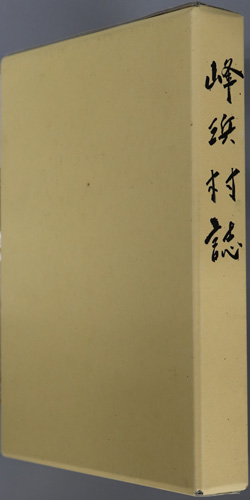 峰浜村誌